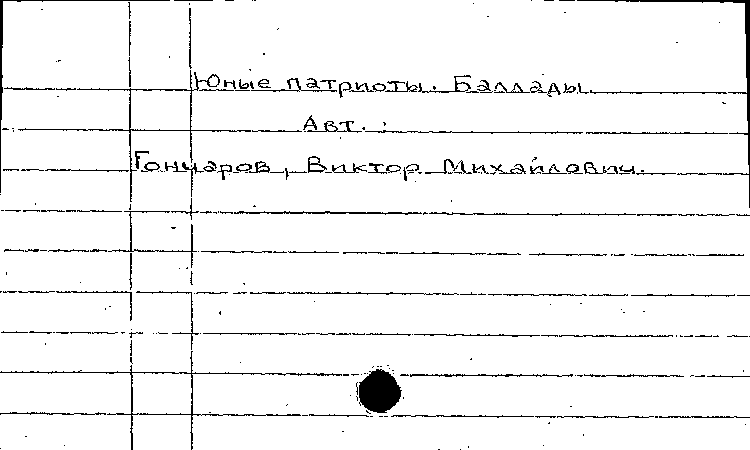 Юные патриоты. Баллады.
Авт. :
Гончаров, Виктор Михайлович.